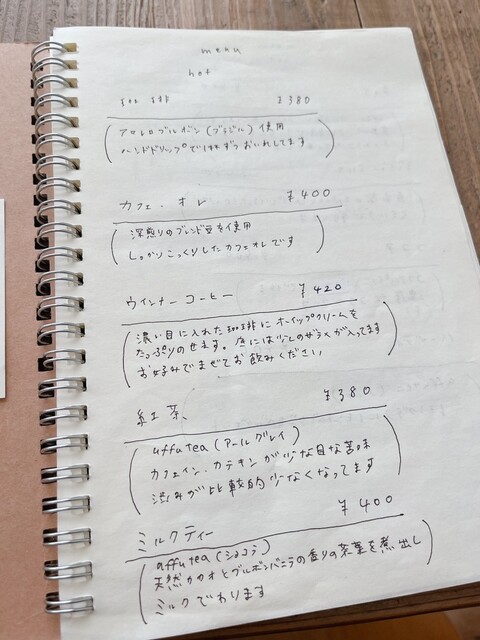 menu
hot
珈琲 ¥380
(アマレロブルボン(ブラジル)使用
ハンドドリップで1杯ずつおいれしてます)
カフェ・オレ ¥400
(深煎りのブレンド豆を使用
しっかりこっくりしたカフェオレです)
ウインナーコーヒー ¥420
(濃い目に入れた珈琲にホイップクリームを
たっぷりのせます。底には少しのザラメが入ってます
お好みでまぜてお飲みください)
紅茶 ¥380
(uffu tea(アールグレイ)
カフェイン・カテキンが少な目な苦味
渋みが比較的少なくなってます)
ミルクティー ¥400
(uffu tea(ショコラ)
天然カカオとブルボンバニラの香りの茶葉を煮出し
ミルクでわります)